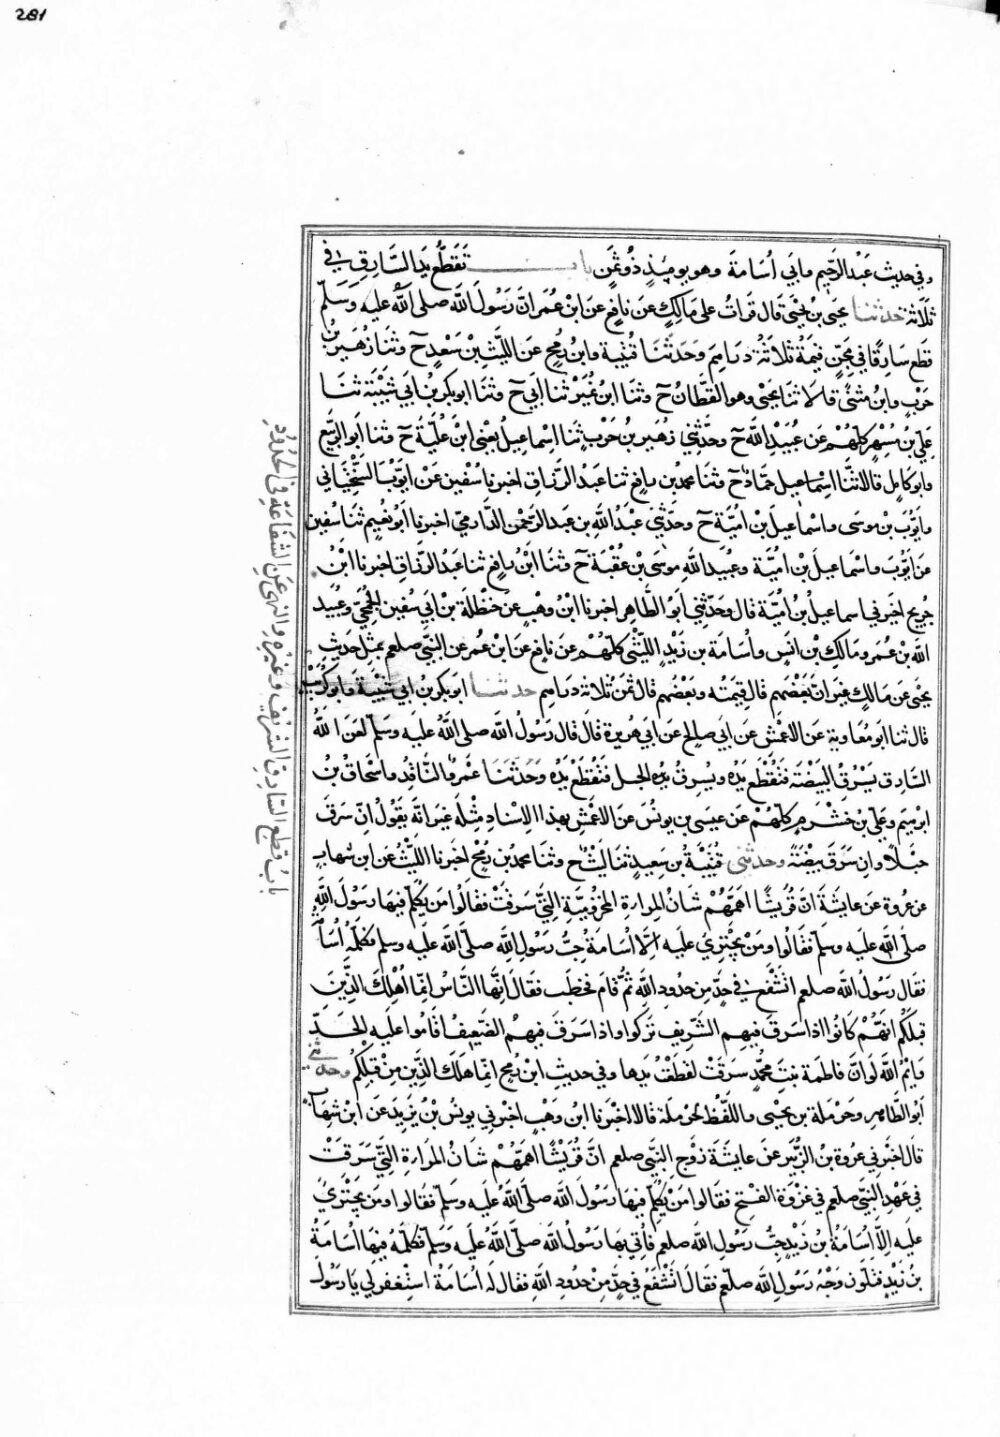 281
وفي حديث عبد الرحيم وابي أسامة وهو يومئذ ذو ثمن باب تقطع يد السارق في
ثلاثة حدثنا يحيى بن يحيى قال قرات على مالك عن نافع عن ابن عمر ان رسول الله صلى الله عليه وسلم
قطع سارقا في مجن قيمة ثلاثة دراهم وحدثنا قتيبة وابن رمح عن الليث بن سعد ح وثنا زهير بن
حرب وابن مثنى قالا ثنا يحيى وهو القطان ح وثنا ابن نمير ثنا ابي ح وثنا ابو بكر بن ابي شيبة ثنا
علي بن مسهر كلهم عن عبيد الله ح وحدثني زهير بن حرب ثنا اسماعيل يعني ابن علية ح وثنا ابو الربيع
وابو كامل قالا ثنا اسماعيل حماد ح وثنا محمد بن رافع ثنا عبد الرزاق اخبرنا سفين عن ايوب السختياني
وايوب بن موسى واسماعيل بن امية ح وحدثني عبد الله بن عبد الرحمن الدارمي اخبرنا ابو نعيم ثنا سفين
عن ايوب واسماعيل بن امية وعبيد الله موسى بن عقبة ح وثنا ابن رافع ثنا عبد الرزاق اخبرنا ابن
جريج اخبرني اسماعيل بن امية قال وحدثني ابو الطاهر اخبرنا ابن وهب عن حنظلة بن ابي سفين الجمحي وعبيد
الله بن عمر ومالك بن انس واسامة بن زيد الليثي كلهم عن نافع عن ابن عمر عن النبي صلعم بمثل حديث
يحيى عن مالك غير ان بعضهم قال قيمته وبعضهم قال ثمن ثلاثة دراهم حدثنا ابو بكر بن ابي شيبة وابو كريب
قال ثنا ابو معاوية عن الاعمش عن ابي صالح عن ابي هريرة قال قال رسول الله صلى الله عليه وسلم لعن الله
السارق يسرق البيضة فتقطع يده ويسرق يده الحبل فتقطع يده وحدثنا عمرو الناقد واسحاق بن
ابرهيم وعلي بن خشرم كلهم عن عيسى بن يونس عن الاعمش بهذا الاسناد مثله غير انه يقول ان سرق
حبلا وان سرق بيضة وحدثني قتيبة بن سعيد ثنا ليث ح وثنا محمد بن رمح اخبرنا الليث عن ابن شهاب
عن عروة عن عايشة ان قريشا اهمهم شان المراة المخزومية التي سرقت فقالوا من يكلم فيها رسول الله
صلى الله عليه وسلم فقالوا ومن يجتري عليه الا اسامة حب رسول الله صلى الله عليه وسلم فكلمه اسامة
فقال رسول الله صلعم اتشفع في حد من حدود الله ثم قام فخطب فقال ايها الناس انما اهلك الذين
قبلكم انهم كانوا اذا سرق فيهم الشريف تركوا واذا سرق فيهم الضعيف اقاموا عليه الحد
وايم الله لو ان فاطمة بنت محمد سرقت لقطعت يدها وفي حديث ابن رمح انما هلك الذين من قبلكم وحدثني
ابو الطاهر وحرملة بن يحيى واللفظ لحرملة قالا اخبرنا ابن وهب اخبرني يونس بن يزيد عن ابن شهاب
قال اخبرني عروة بن الزبير عن عايشة زوج النبي صلعم ان قريشا اهمهم شان المراة التي سرقت
في عهد النبي صلعم في غزوة الفتح فقالوا من يكلم فيها رسول الله صلى الله عليه وسلم فقالوا ومن يجتري
عليه الا اسامة بن زيد حب رسول الله صلعم فاتي بها رسول الله صلى الله عليه وسلم فكلمه فيها اسامة
بن زيد فتلون وجه رسول الله صلعم فقال اتشفع في حد من حدود الله فقال له اسامة استغفر لي يا رسول
باب قطع السارق الشريف وغيره والنهى عن الشفاعة في الحدود